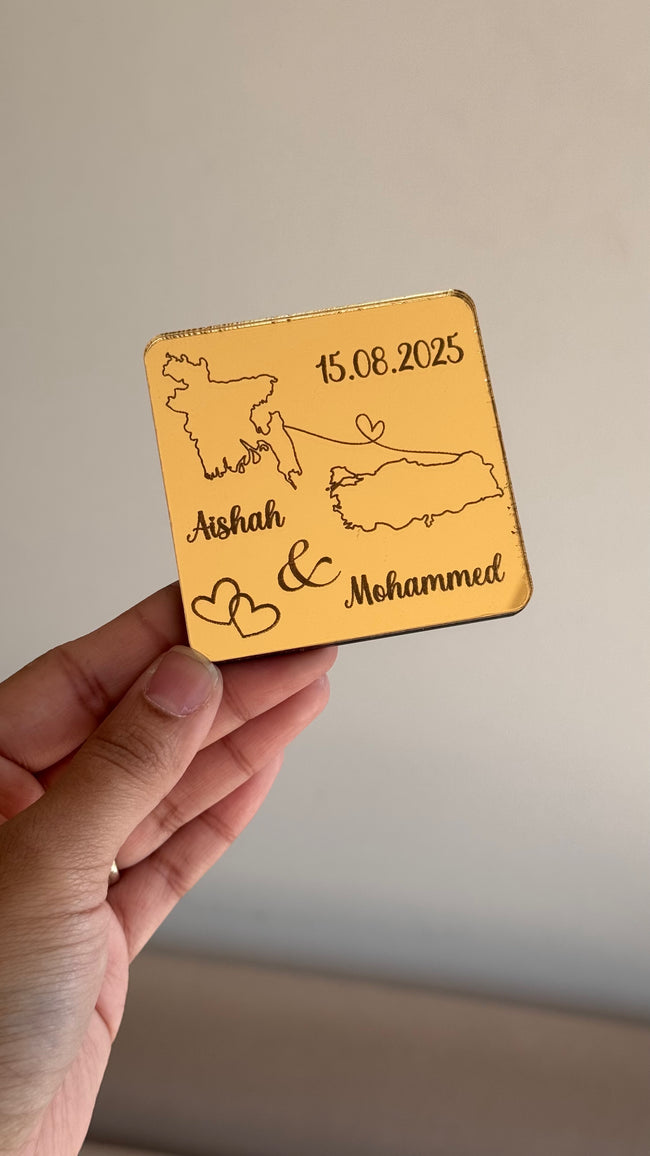 15.08.2025
Aishah
&
Mohammed